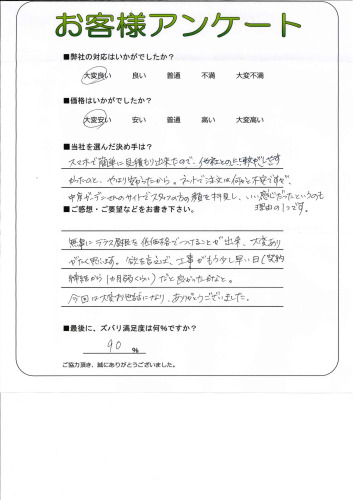 お客様アンケート
■弊社の対応はいかがでしたか？
大変良い 良い 普通 不満 大変不満
■価格はいかがでしたか？
大変安い 安い 普通 高い 大変高い
■当社を選んだ決め手は？
スマホで簡単に見積もり出来たので、他社との比較がしやす
かったのと、やはり安かったから。ネットで注文は何かと不安ですが、
サイトでスタッフの方の顔を拝見し、いい感じだったというのも
理由の1つです。
■ご感想・ご要望などをお書き下さい。
無事にテラス屋根を低価格でつけることが出来、大変あり
がたく思います。欲を言えば、工事がもう少し早い日(契約
締結から1ヵ月弱くらい)だと良かったかなと。
今回は大変お世話になり、ありがとうございました。
■最後に、ズバリ満足度は何%ですか？
90 %
ご協力頂き、誠にありがとうございました。